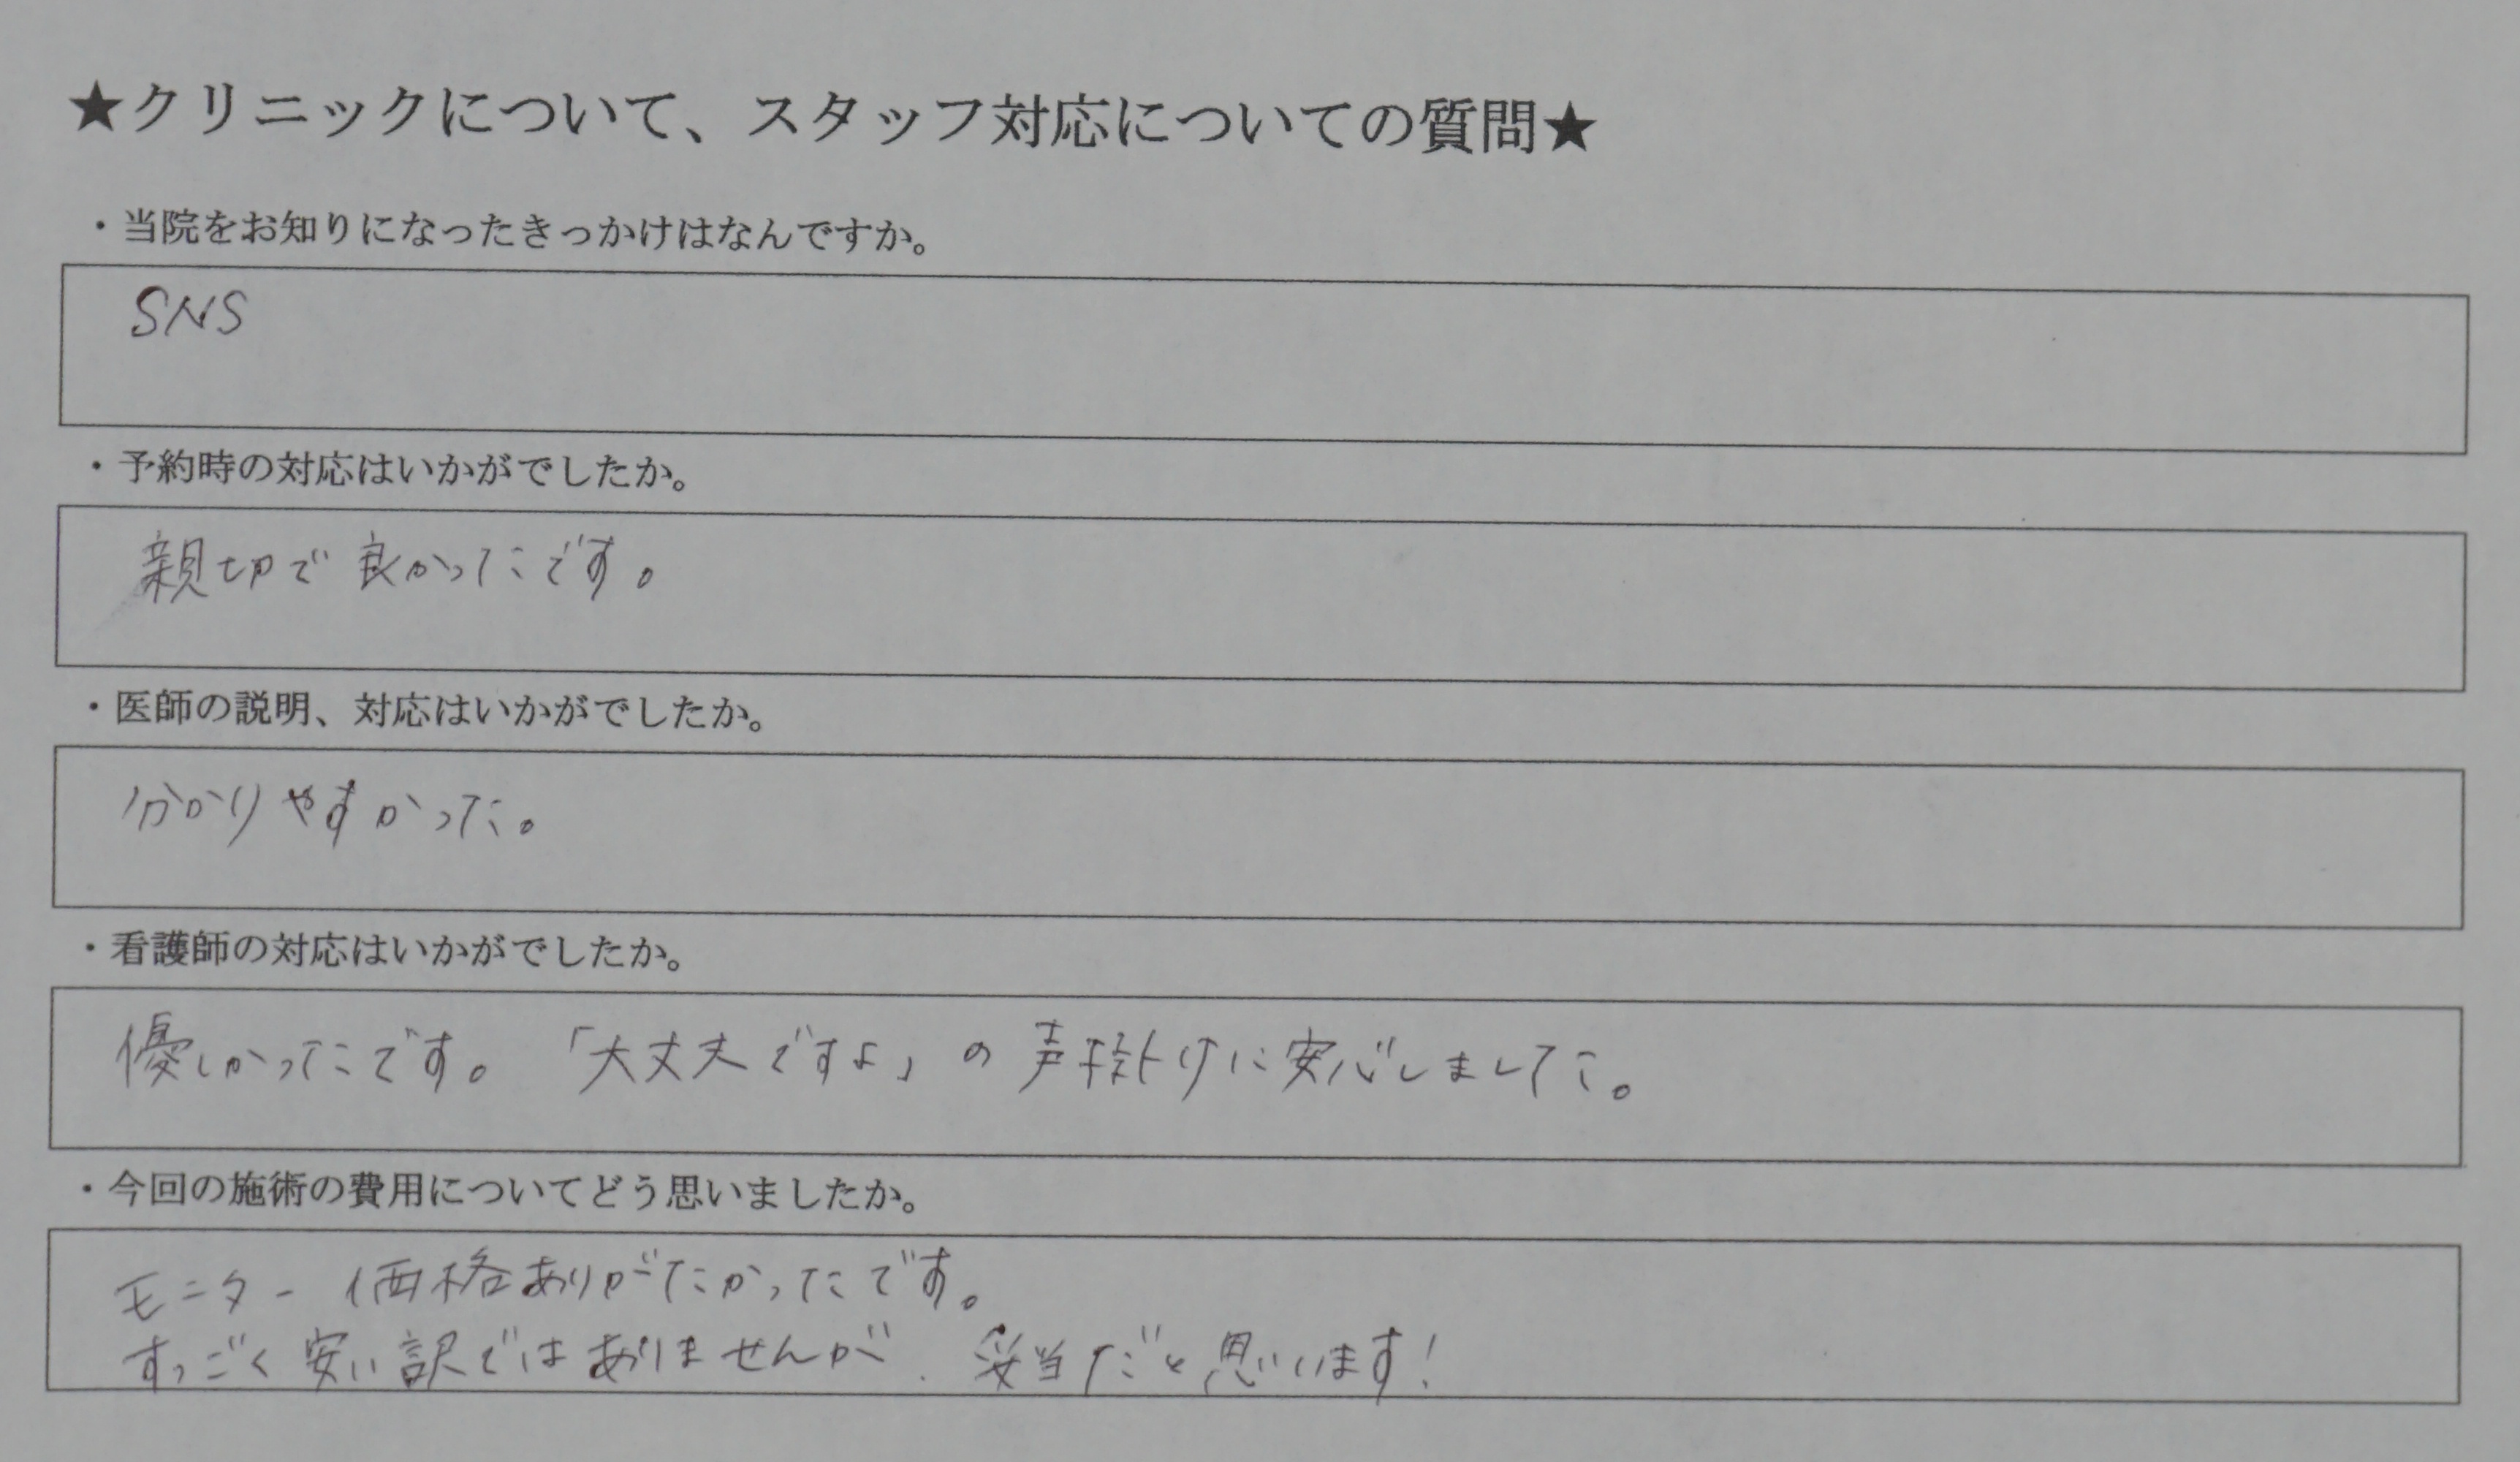 ★クリニックについて、スタッフ対応についての質問★
・当院をお知りになったきっかけはなんですか。
SNS
・予約時の対応はいかがでしたか。
親切で良かったです。
・医師の説明、対応はいかがでしたか。
分かりやすかった。
・看護師の対応はいかがでしたか。
優しかったです。「大丈夫ですよ」の声掛けに安心しました。
・今回の施術の費用についてどう思いましたか。
モニター価格ありがたかったです。
すっごく安い訳ではありませんが、妥当だと思います!